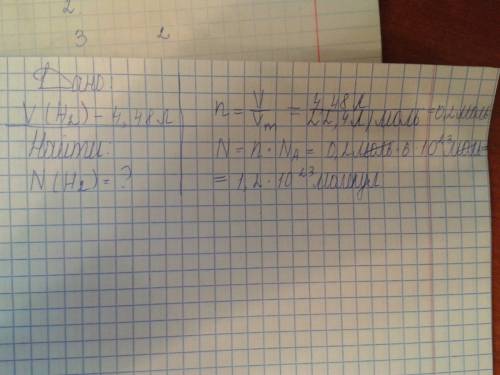 2.
3 2
Дано:
V(H₂) - 4,48 л
Найти:
N(H₂) = ?
n = V/Vm = 4,48 л/22,4 л/моль = 0,2 моль
N = n · NA = 0,2 моль · 6 · 10²³ моль =
= 1,2 · 10²³ молекул